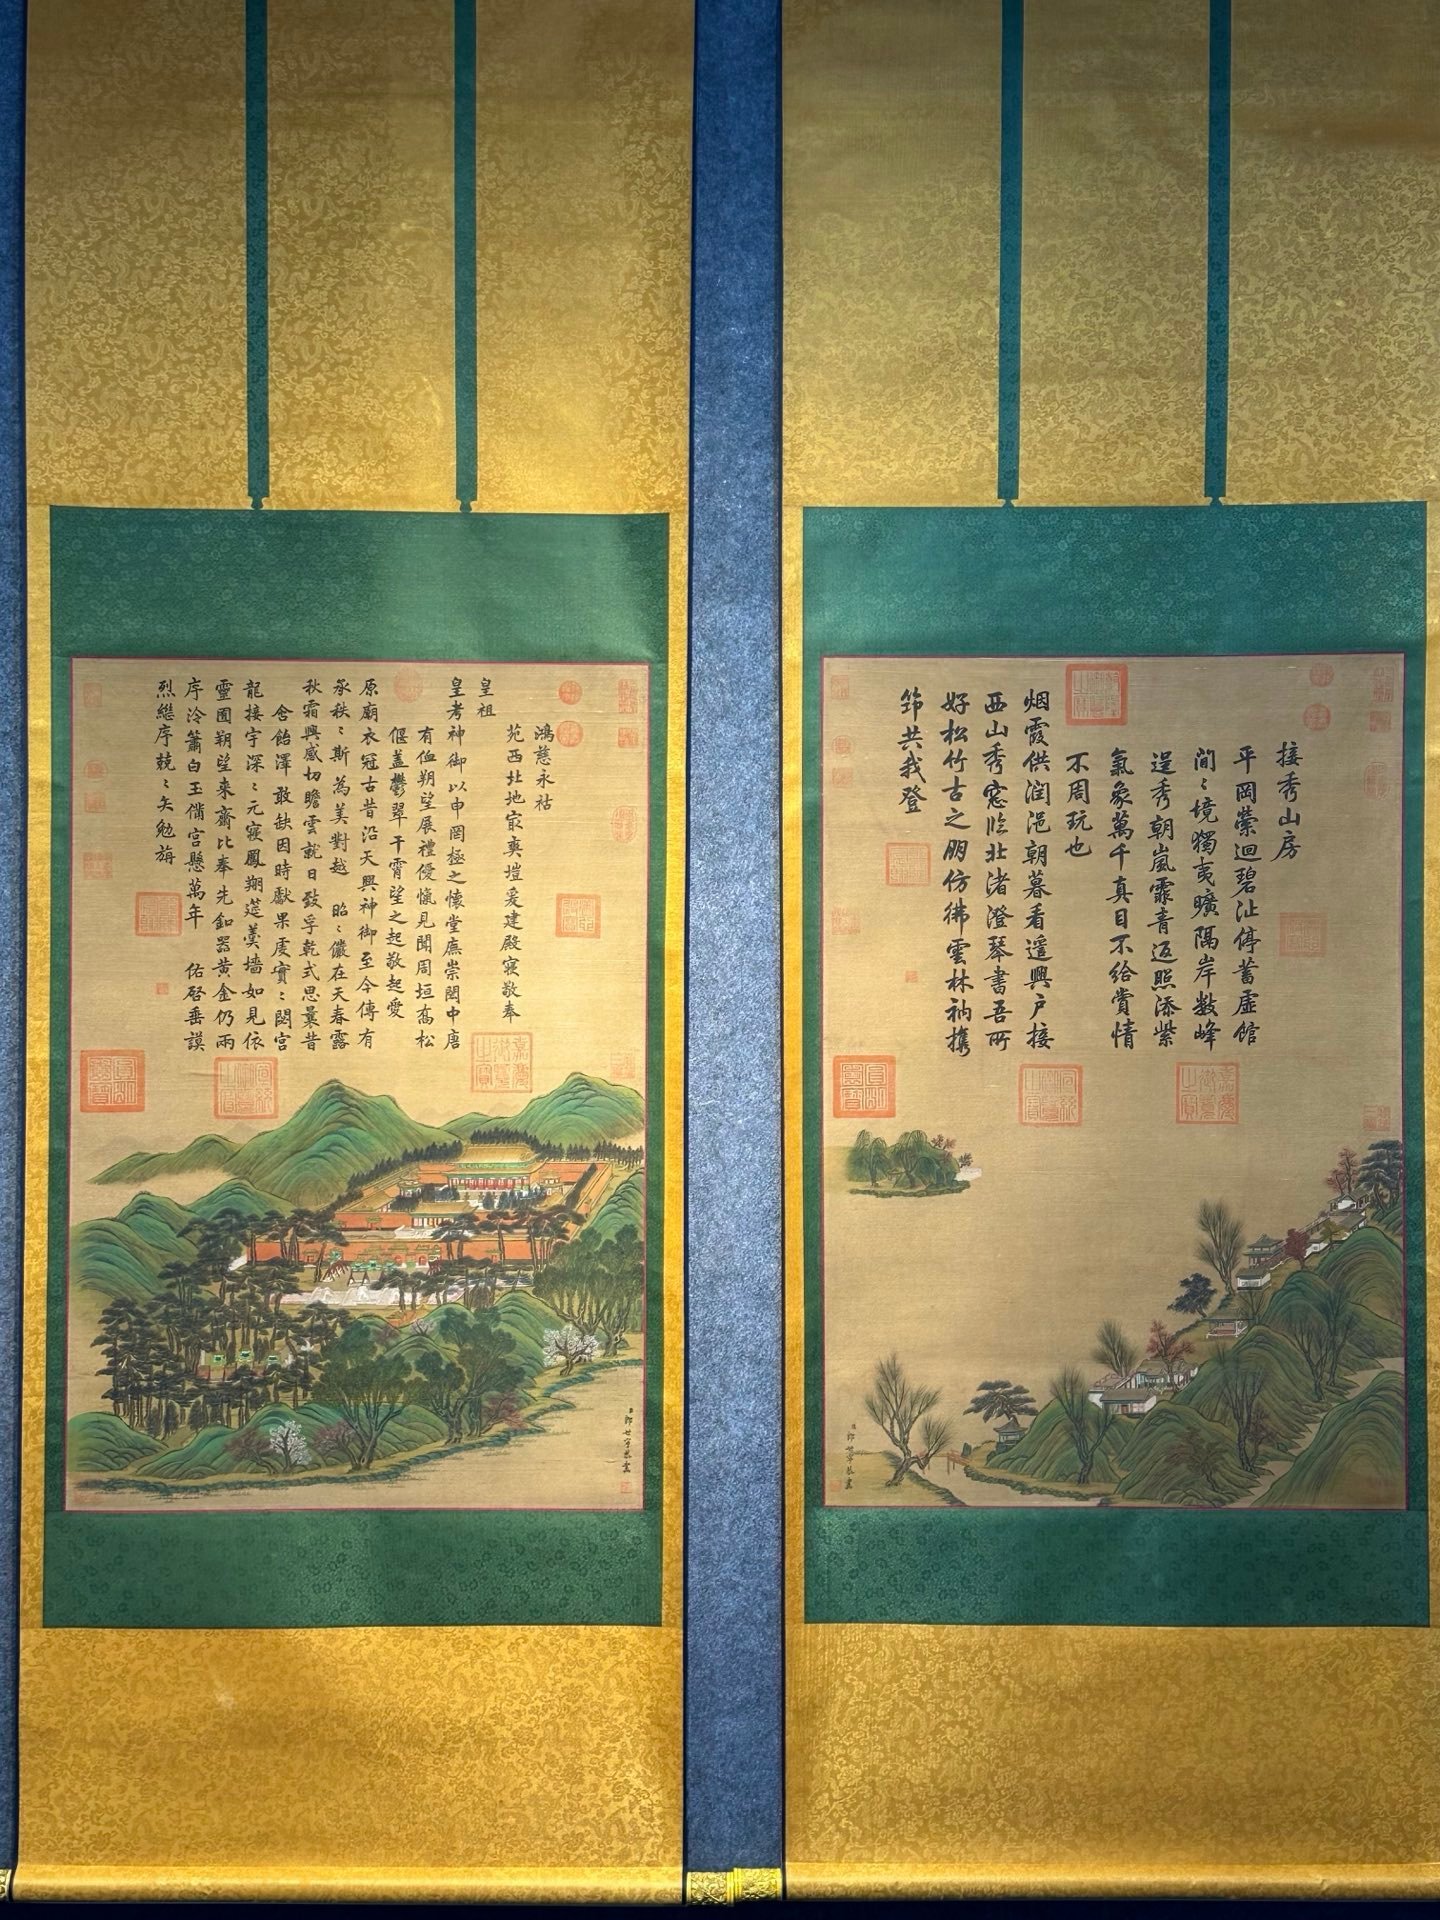 接秀山房
平岡縈迴碧沚停蓄虛館
閒〻境獨夷曠隔岸數峰
逞秀朝嵐霏青返照添紫
氣象萬千真目不給賞情
不周玩也
烟霞供潤浥朝暮看遥興户接
西山秀窓临北渚澄琴書吾所
好松竹古之朋仿彿雲林衲攜
筇共我登
臣郎世寧恭畫
鴻慈永祜
苑西北地最爽塏爰建殿寢敬奉
皇祖
皇考神御以申罔極之懷堂廡崇閎中唐
有侐朔望展禮僾愾見聞周垣喬松
偃蓋鬱翠干霄望之起敬起愛
原廟衣冠古昔沿天興神御至今傳有
承秩〻斯為美對越 昭〻儼在天春露
秋霜興感切瞻雲就日致孚乾式思曩昔
含飴澤敢缺因時獻果虔實〻閟宮
龍接宇深〻元寢鳳翔筵羹墻如見依
靈囿朔望来齋比奉先釦器黄金仍兩
序泠簫白玉備宮懸萬年 佑啓垂謨
烈繼序兢〻矢勉旃
臣郎世寧恭畫